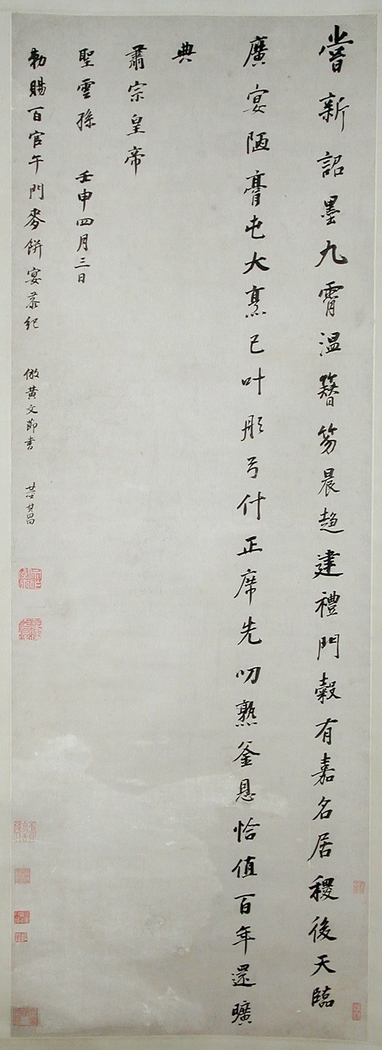 嘗新詔墨九霄温簪笏晨趨建禮門穀有嘉名居稷後天臨
廣宴陋膏屯大烹已叶彤弓什正席先叨熟釜恩恰值百年還曠
典
肅宗皇帝
聖雲孫 壬申四月三日
勅賜百官午門麥餅宴恭紀 倣黄文節書 其昌